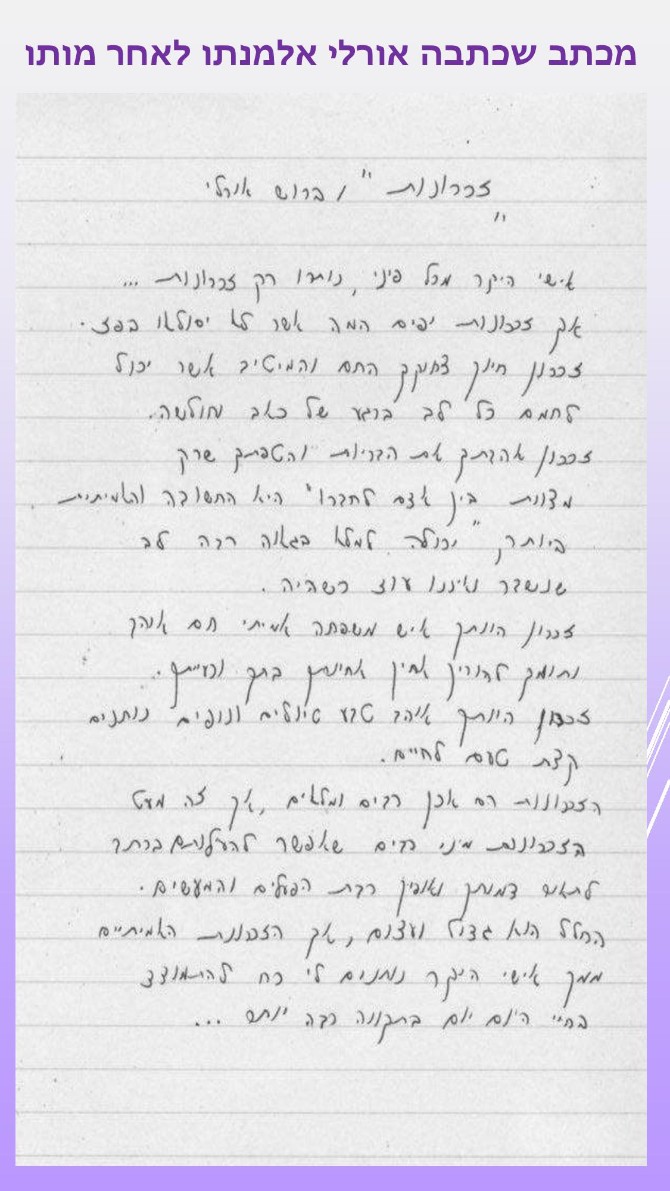 מכתב שכתבה אורלי אלמנתו לאחר מותו
"זכרונות" / ברוש אורלי
אישי היקר מכל פיני, נותרו רק זכרונות ...
אך זכרונות יפים המה אשר לא יסולאו בפז.
זכרון חיוך צחוקך החם והמיטיב אשר יכול
לחמם כל לב ברגע של כאב וחולשה.
זכרון אהבתך את הבריות והטפתך שרק
מצוות "בין אדם לחברו" היא החשובה והאמיתית
ביותר, יכולה למלא בגאוה רבה לב
שנשבר ואיננו עוד כשהיה.
זכרון היותך איש משפחה אמיתי חם אוהב
ותומך להוריך אחיך אחיותך בתך ורעייתך.
זכרון היותך אוהב טבע טיולים ונופים נותנים
קצת טעם לחיים.
הזכרונות הם אכן רבים ומלאים, אך זה מעט
בזכרונות מיני רבים שאפשר להעלותם
לתאר דמותך ואופיך רבת הפעלים והמעשים.
החלל הוא גדול ועצום, אך הזכרונות האמיתיים
ממך אישי היקר נותנים לי כח להתמודד
בחיי היום יום בתקווה רבה יותר ...